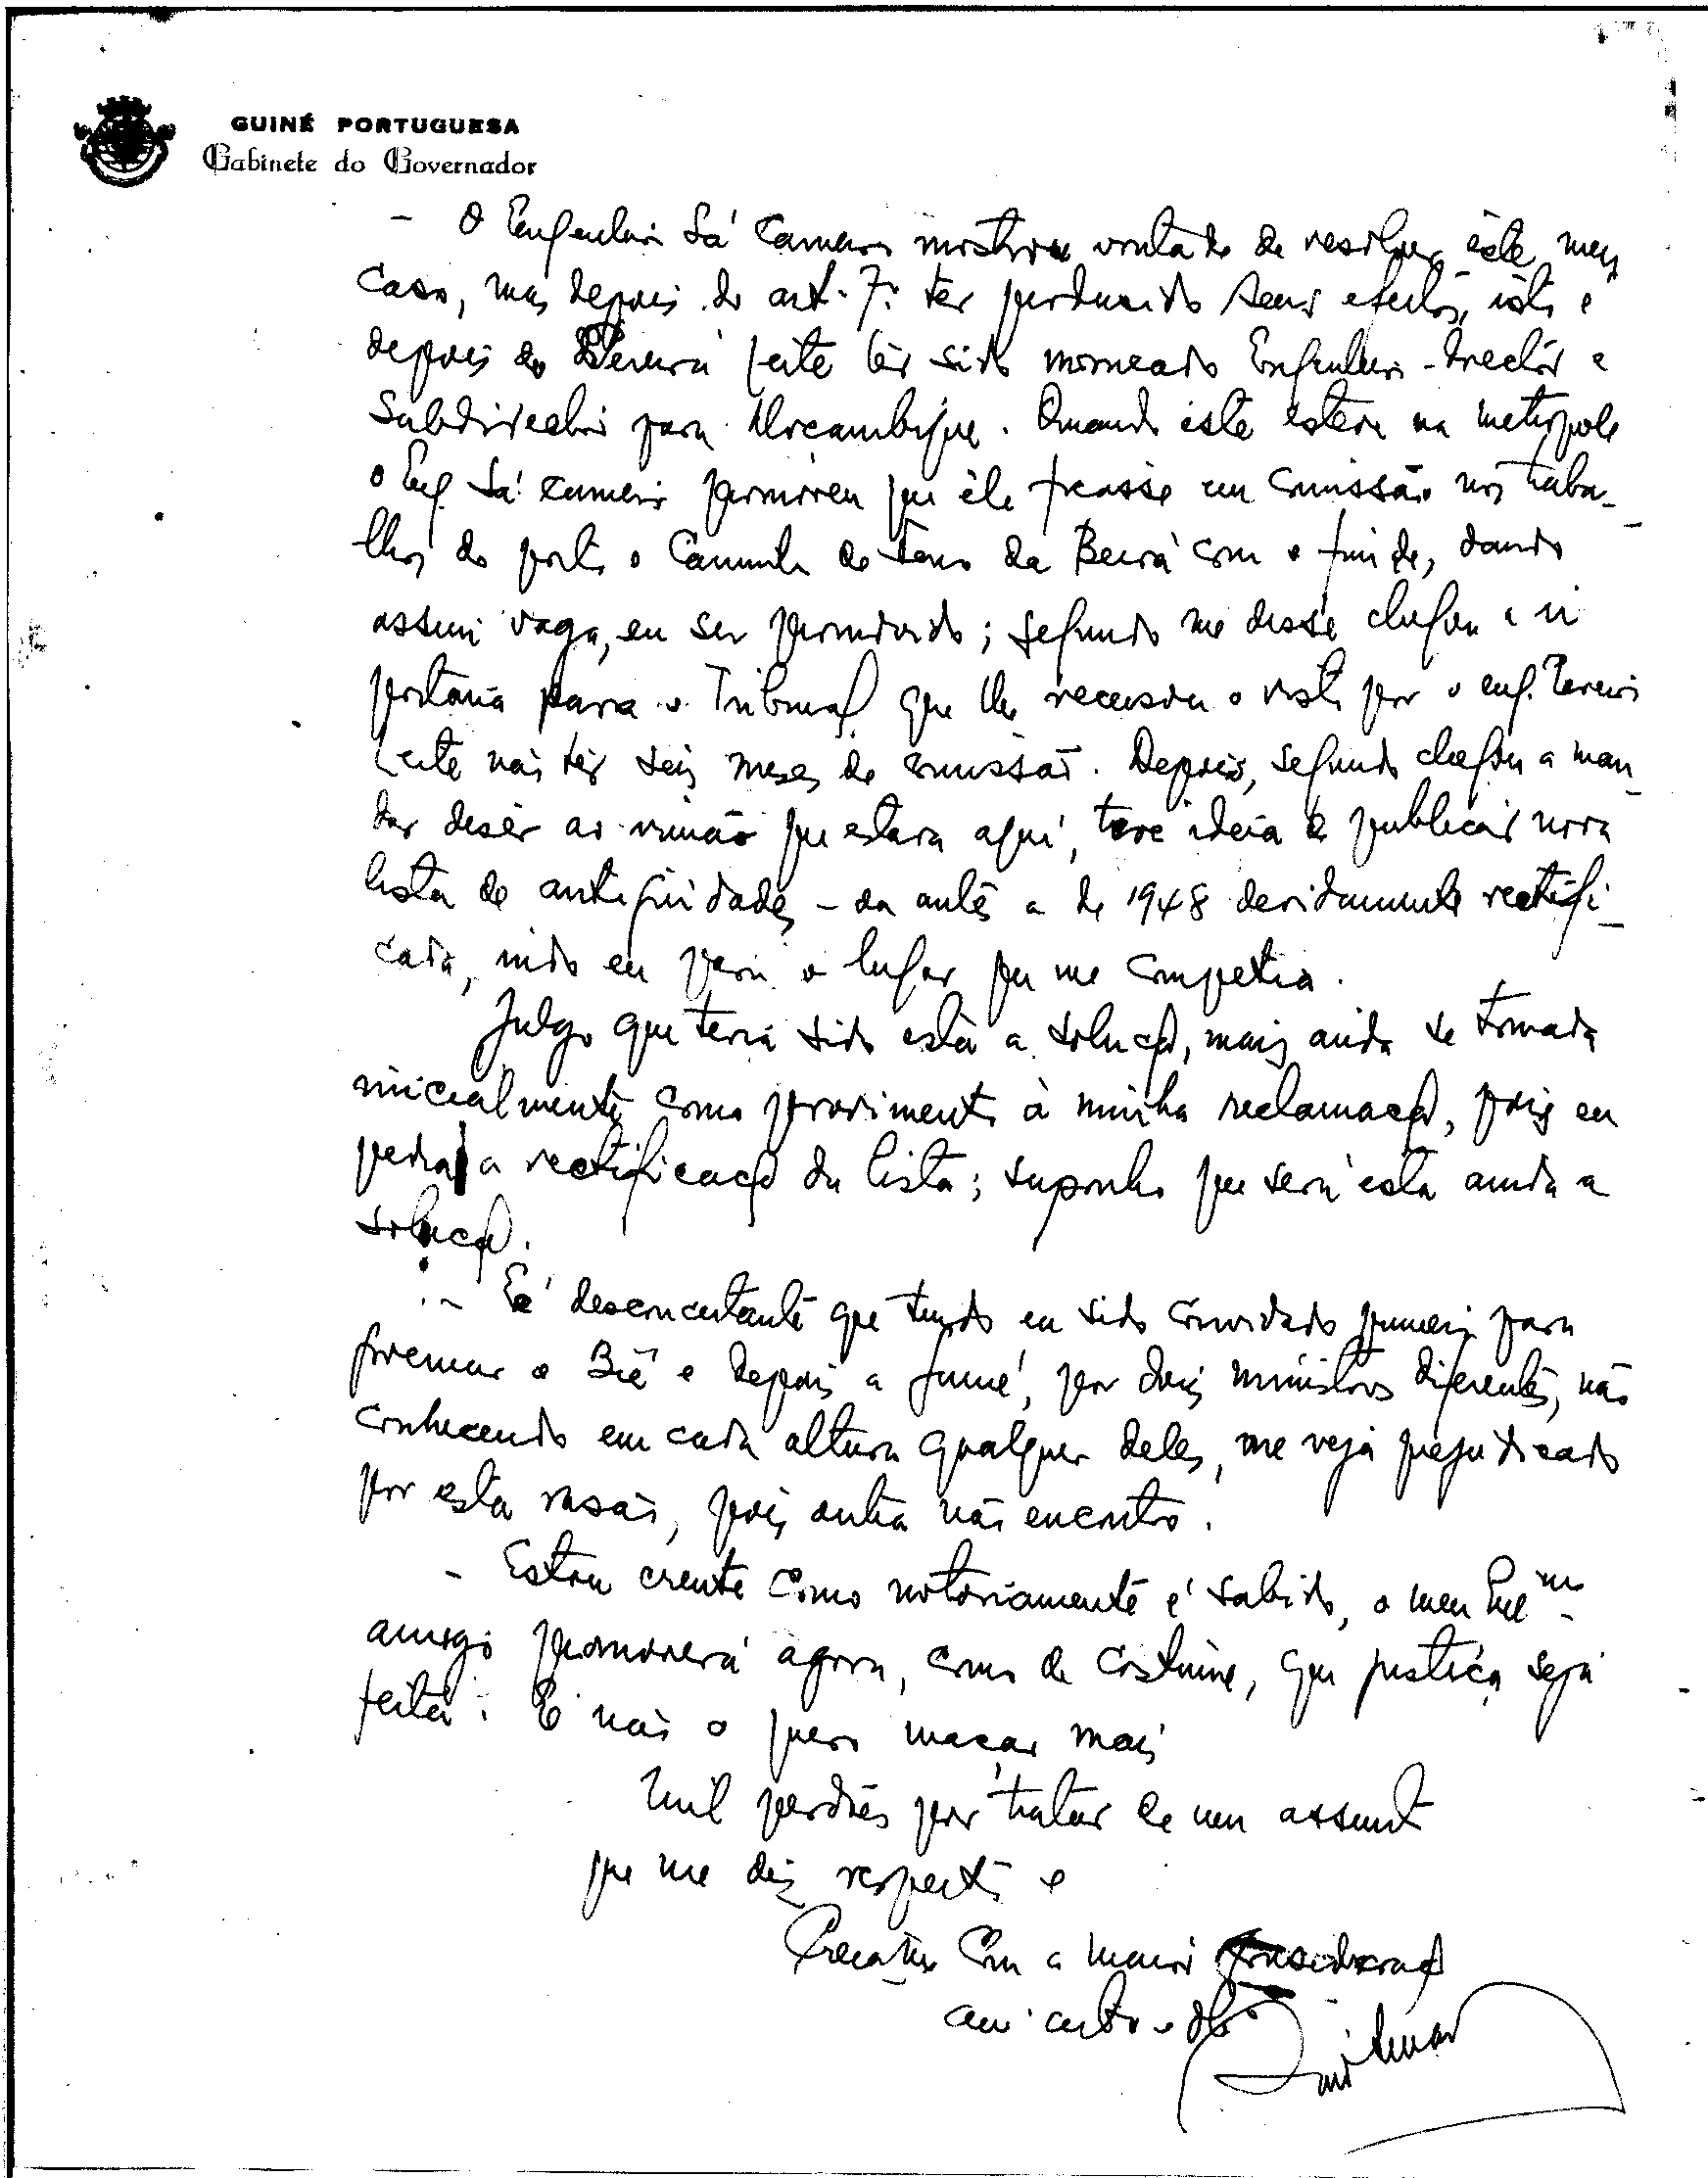 GUINÉ PORTUGUESA
Gabinete do Governador
- O Engenheiro Sá Carneiro mostrou vontade de resolver êste meu
caso, mas depois do art. 7º ter produzido seus efeitos, isto é
depois do Pereira Leite têr sido nomeado Engenheiro-Director e
Subdirector para Moçambique. Quando êste esteve na metropole
o Eng. Sá Carneiro promoveu que êle ficasse em comissão nos traba-
lhos do porto e Caminho de Ferro da Beira com o fim de, dando
assim vaga, eu ser promovido; segundo me disse chegou a ir
portaria para o Tribunal que lhe recusou o visto por o eng. Pereira
Leite não têr seis meses de comissão. Depois, segundo chegou a man-
dar disêr ao irmão que estava aqui, teve ideia de publicar nova
lista de antigüidades - ou antes a de 1948 devidamente rectifi-
cada, indo eu para o lugar que me competia.
Julgo que teria sido esta a solução, mais ainda se tomada
inicialmente como provimento à minha reclamação, pois eu
pedia a rectificação da lista; suponho que será esta ainda a
solução.
- É desconcertante que tendo eu sido convidado primeiro para
governar o Bié e depois a Guiné, por dois ministros diferentes, não
conhecendo em cada altura qualquer deles, me veja prejudicado
por esta rasão, pois outra não encontro.
- Estou crente como notoriamente é sabido, o meu Exmo
amigo promoverá agora, como de costume, que justiça seja
feita. E não o quero maçar mais
Mil perdões por tratar de um assunto
que me diz respeito e
Creia-me com a maior consideração